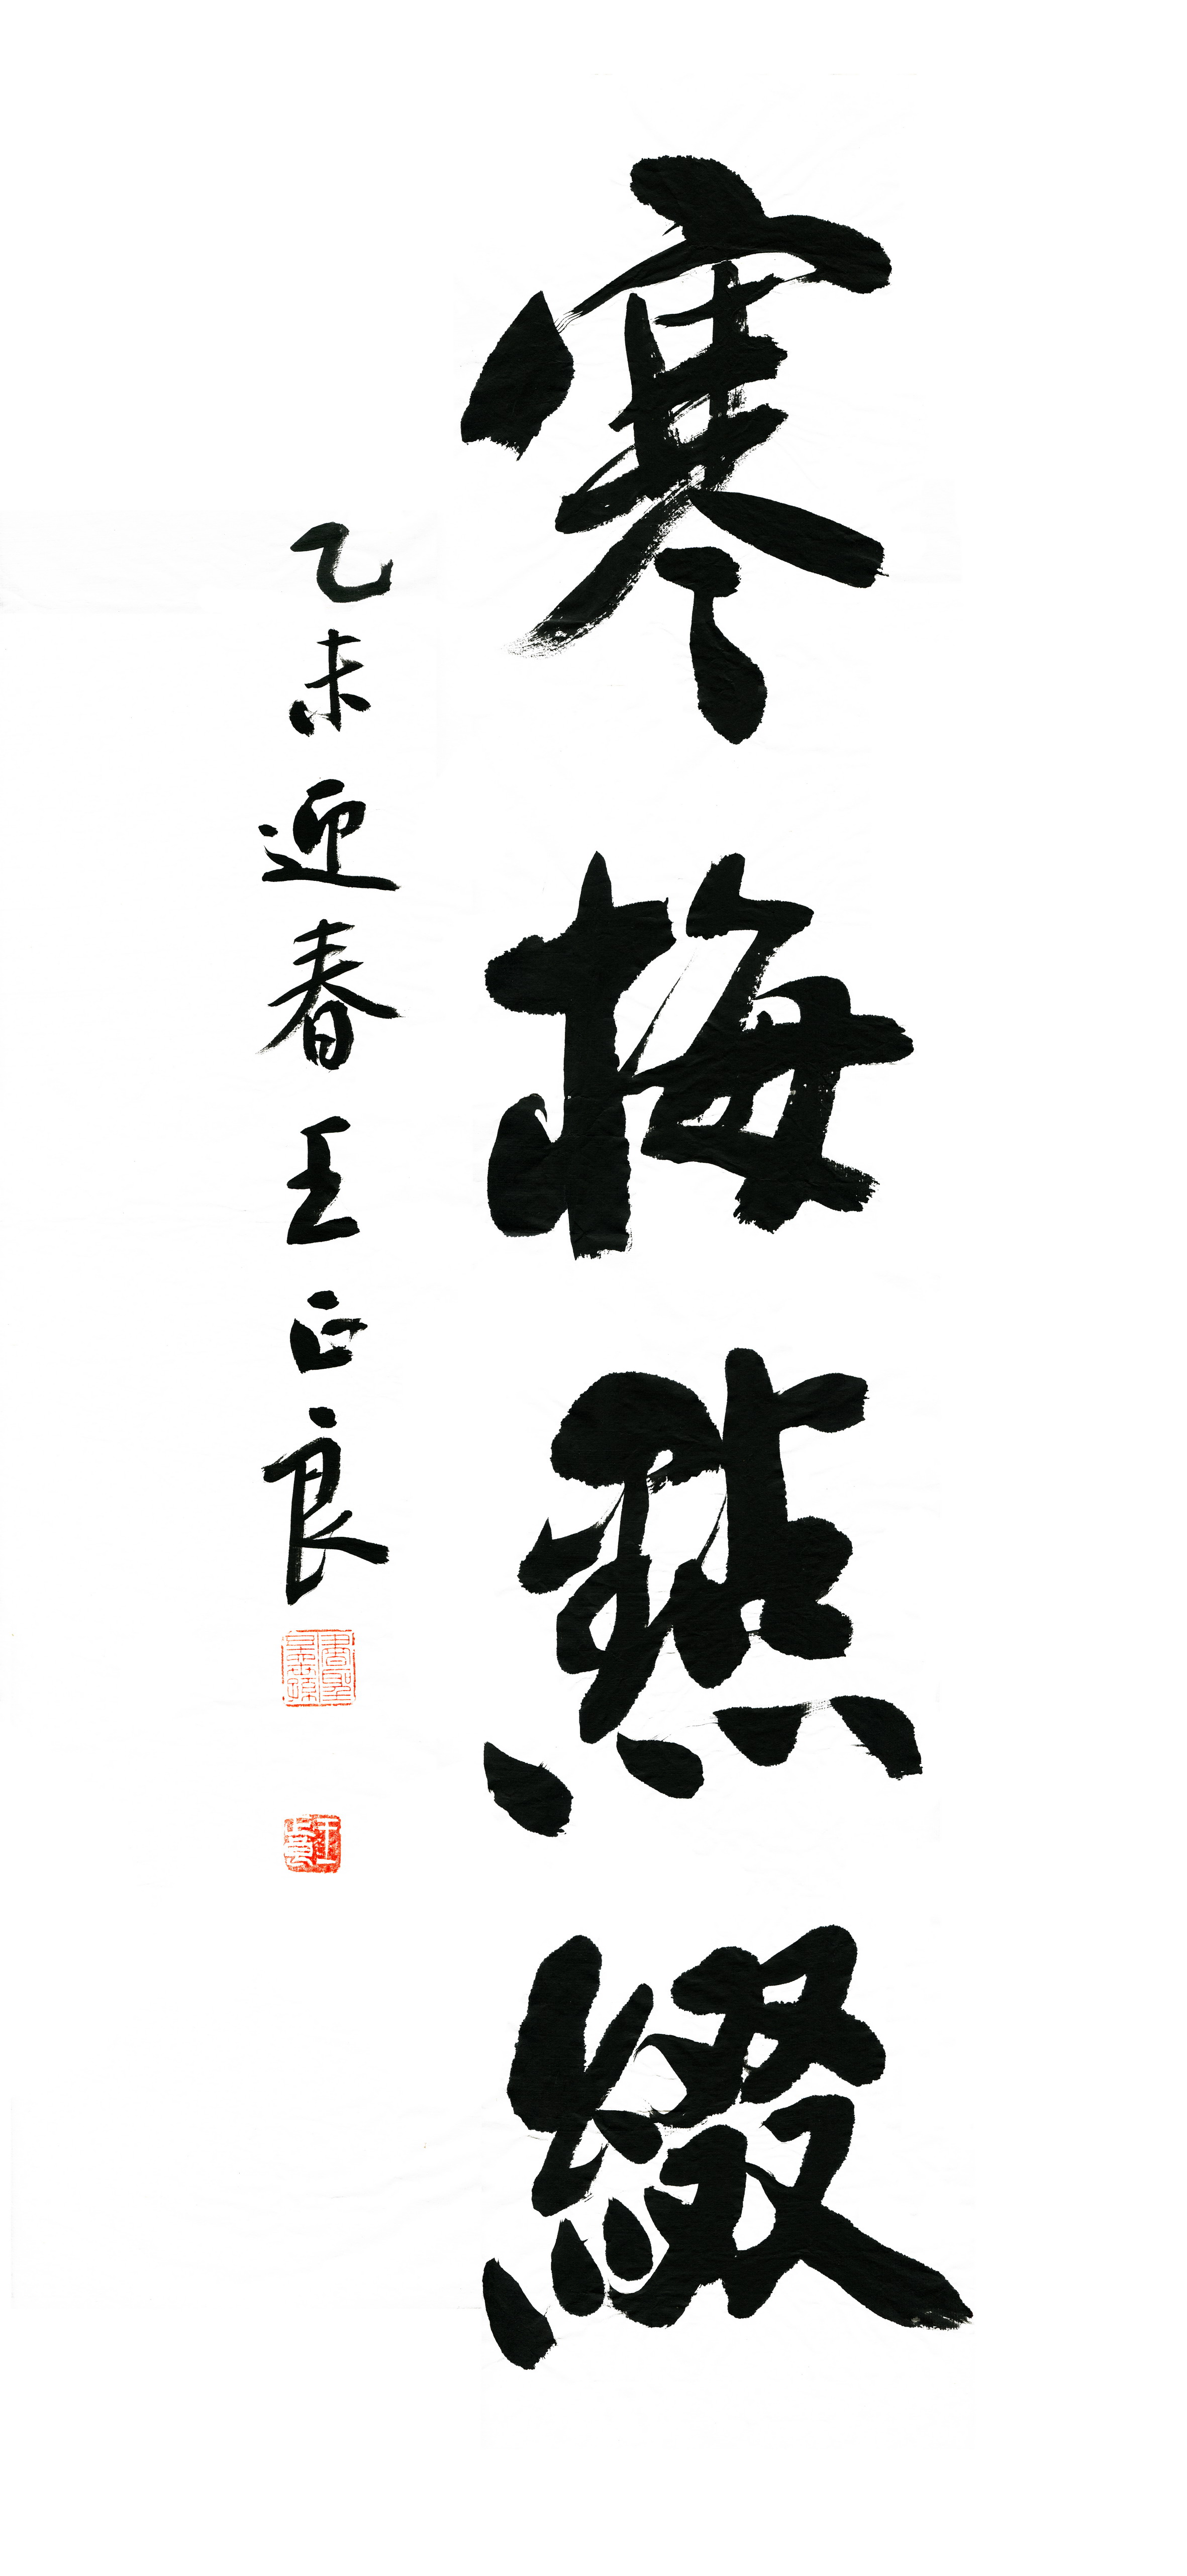 寒梅點綴
乙未迎春王正良